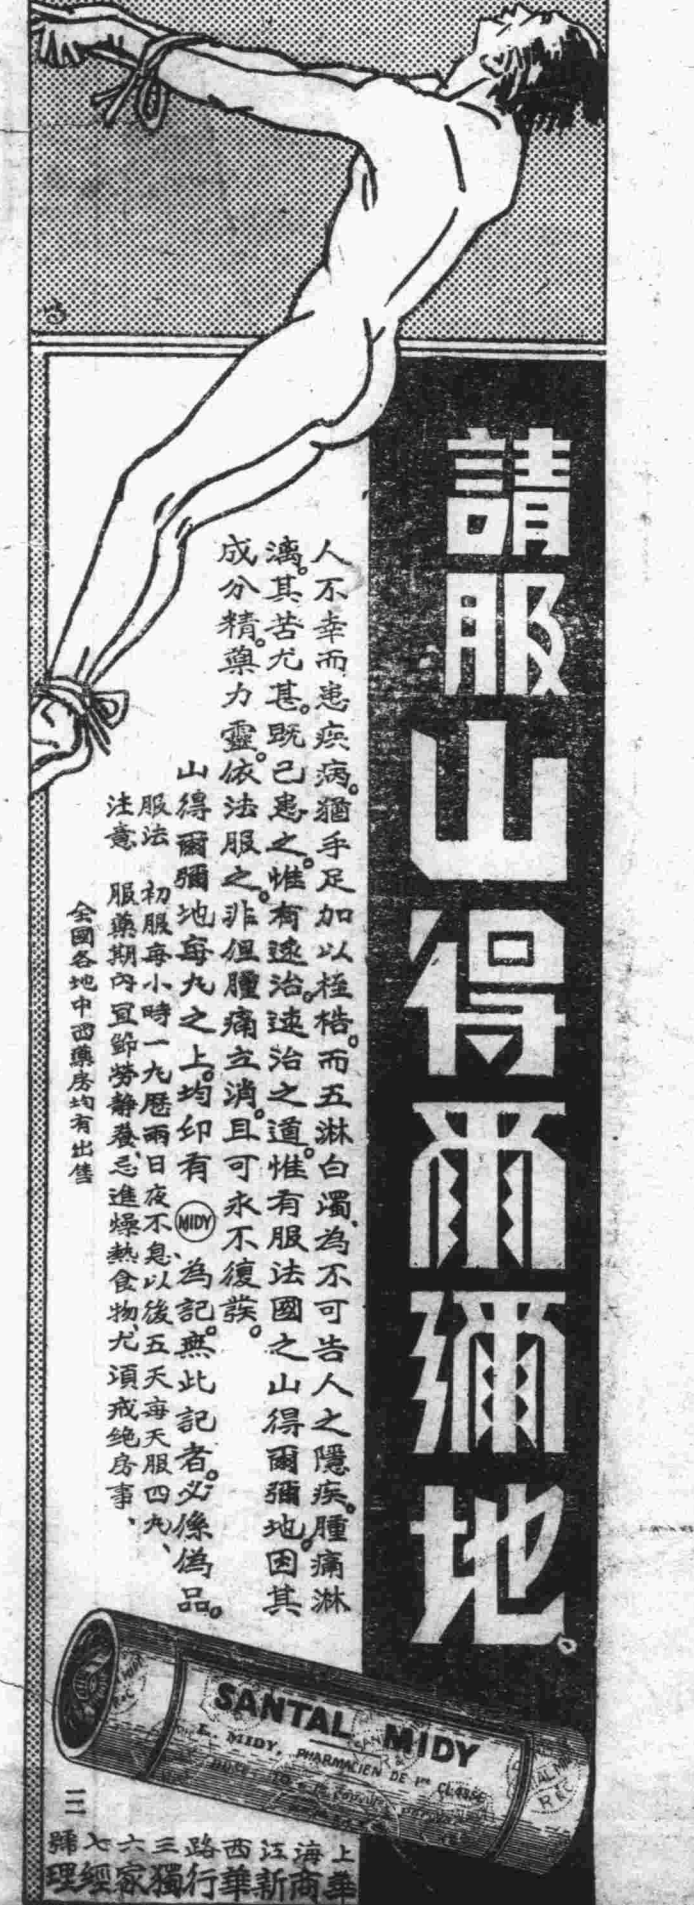 請服山得爾彌地。
人不幸而患疾病。猶手足加以桎梏。而五淋白濁、為不可告人之隱疾。腫痛淋
漓。其苦尤甚。既已患之。惟有速治。速治之道。惟有服法國之山得爾彌地。因其
成分精。藥力靈。依法服之。非但腫痛立消。且可永不復發。
山得爾彌地每丸之上。均印有 MIDY 為記。無此記者。必係偽品。
服法 初服每小時一丸歷兩日夜不息、以後五天每天服四丸、
注意 服藥期內宜節勞靜養、忌進燥熱食物、尤須戒绝房事、
全國各地中西藥房均有出售
SANTAL MIDY
L. MIDY, PHARMACIEN DE 1re CLASSE
上海江西路三六七號
三
華商新華行獨家經理